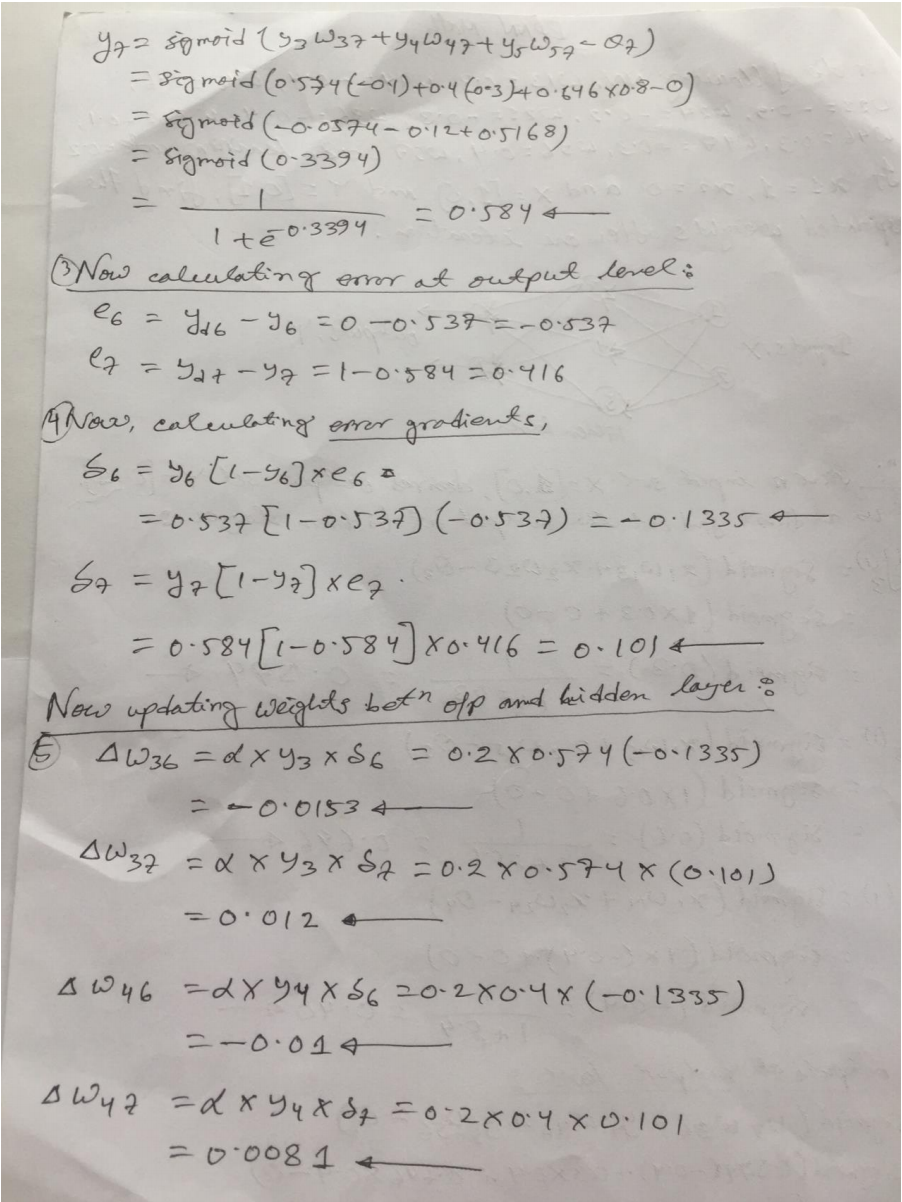 y7 = sigmoid (y3 W37 + y4 W47 + y5 W57 - θ7)
= sigmoid (0.574(-0.1)+0.4(0-3)+0.646×0.8-0)
= sigmoid (-0.0574 - 0.12+0.5168)
= sigmoid (0.3394)
= 1 / (1 + e^-0.3394) = 0.584 ←
③ Now calculating error at output level :
e6 = yd6 - y6 = 0 - 0.537 = -0.537
e7 = yd7 - y7 = 1 - 0.584 = 0.416
④ Now, calculating error gradients,
δ6 = y6 [1-y6] × e6
= 0.537 [1-0.537] (-0.537) = -0.1335 ←
δ7 = y7 [1-y7] × e7.
= 0.584 [1-0.584] × 0.416 = 0.101 ←
Now updating weights betn o/p and hidden layer :
⑤ ΔW36 = α × y3 × δ6 = 0.2 × 0.574 (-0.1335)
= -0.0153 ←
ΔW37 = α × y3 × δ7 = 0.2 × 0.574 × (0.101)
= 0.012 ←
ΔW46 = α × y4 × δ6 = 0.2×0.4× (-0.1335)
= -0.01 ←
ΔW47 = α × y4 × δ7 = 0.2×0.4 × 0.101
= 0.0081 ←